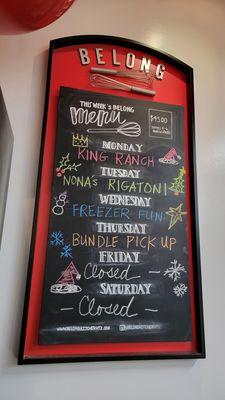 BELONG
THIS WEEK'S BELONG
menu
$95.00
MONDAY
KING RANCH
TUESDAY
NONA'S RIGATONI
WEDNESDAY
FREEZER FUN
THURSDAY
BUNDLE PICK UP
FRIDAY
Closed
SATURDAY
Closed